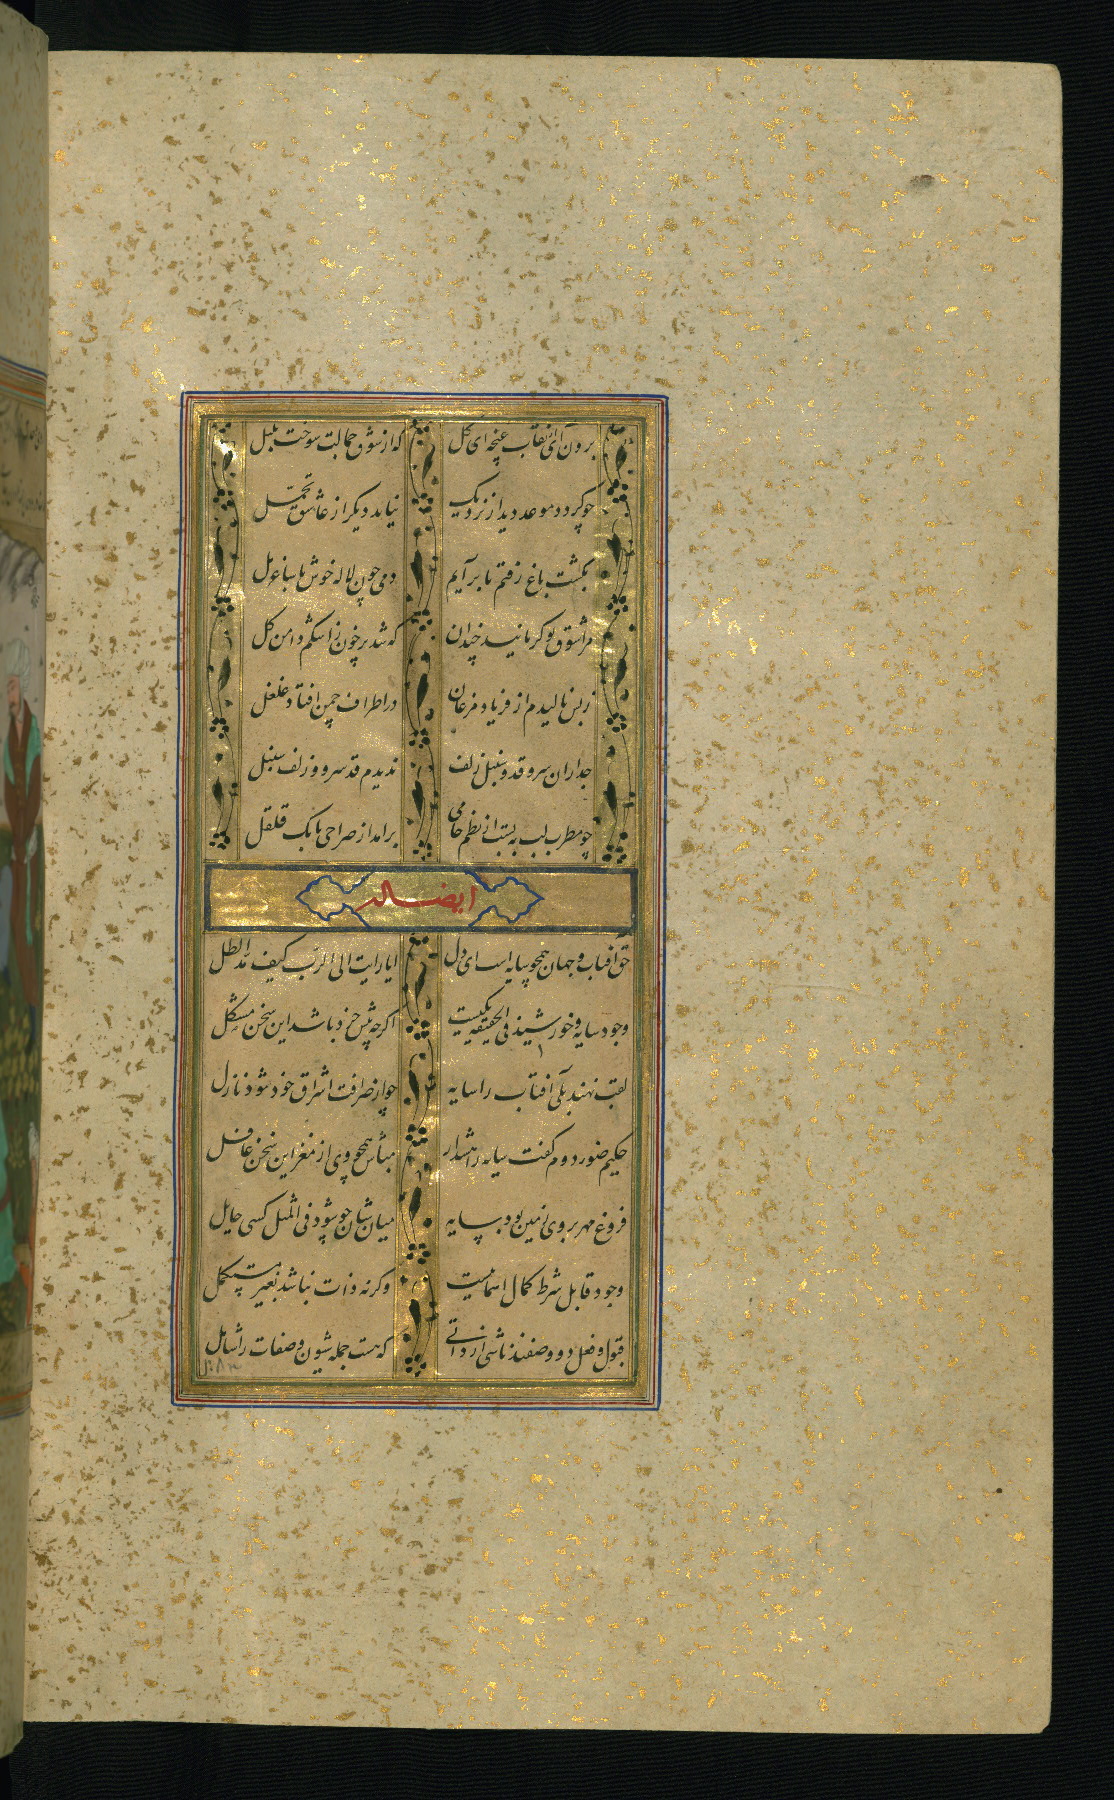 برون آی از نقاب غنچه ای گل که از شوق جمالت سوخت بلبل
چو کردد موعد دیدار نزدیک نیاید دیکر از عاشق تحمل
بکشت باغ رفتم تا برآیم دمی چون لاله خوش با ساغر مل
مرا شوق تو کریانید چندان که شد پرخون ز اشکم دامن کل
ز بس نالیدم از فریاد مرغان در اطراف چمن افتاد غلغل
جدا ز ان سرو قد و سنبل زلف ندیدم قد سرو و زلف سنبل
چو مطرب لب به بست از نظم جامی برامد از صراحی بانک قلقل
ایضاله
حق افتاب و جهان همچو سایه است ای دل ایا رایت الی الرب کیف مد الظل
وجود سایه و خورشید فی الحقیقه یکیست اکرچه پیش خرد باشد این سخن مشکل
لقب نهند بلی افتاب را سایه چو از صرافت اشراق خود شود نازل
حکیم ضور دوم کفت سایه را هشدار مباش همچو وی از مغز این سخن غافل
فروغ مهر بروی زمین بود سایه میان شان چو شود فی المثل کسی حایل
وجود قابل شرط کمال اسماییست وکرنه ذات نباشد بغیر مستکمل
قبول و فعل دو وصفند ناشی از ذاتی که هست جمله شیون و صفات را شامل